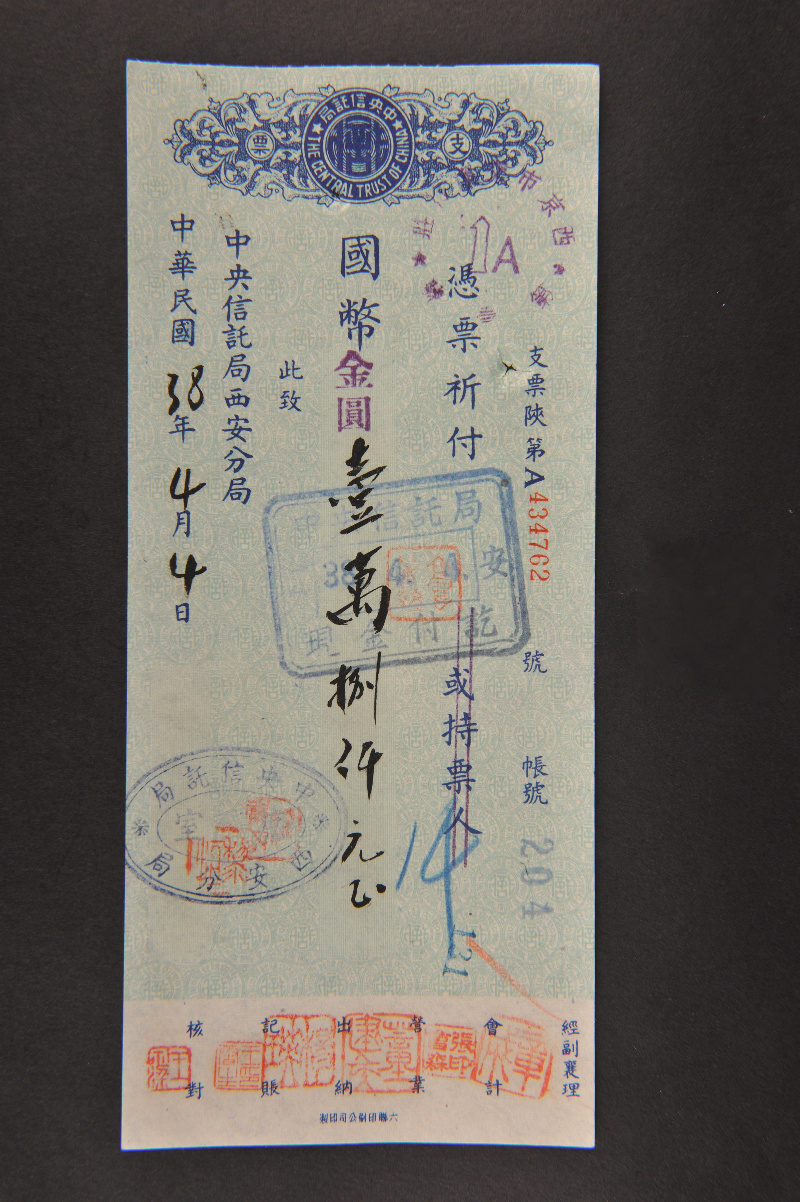 中央信託局
THE CENTRAL TRUST OF CHINA
支票
西京市
1A
支票陝第A434762號 帳號 204
憑票祈付 或持票人
國幣金圓壹萬捌仟元正
此致
中央信託局西安分局
中華民國38年4月4日
中 信託局
38. 4. 4. 安
現金付訖
14
121
中央信託局
西安分局
經副襄理
會計
營業
出納
記賬
核對
六聯印刷公司印製